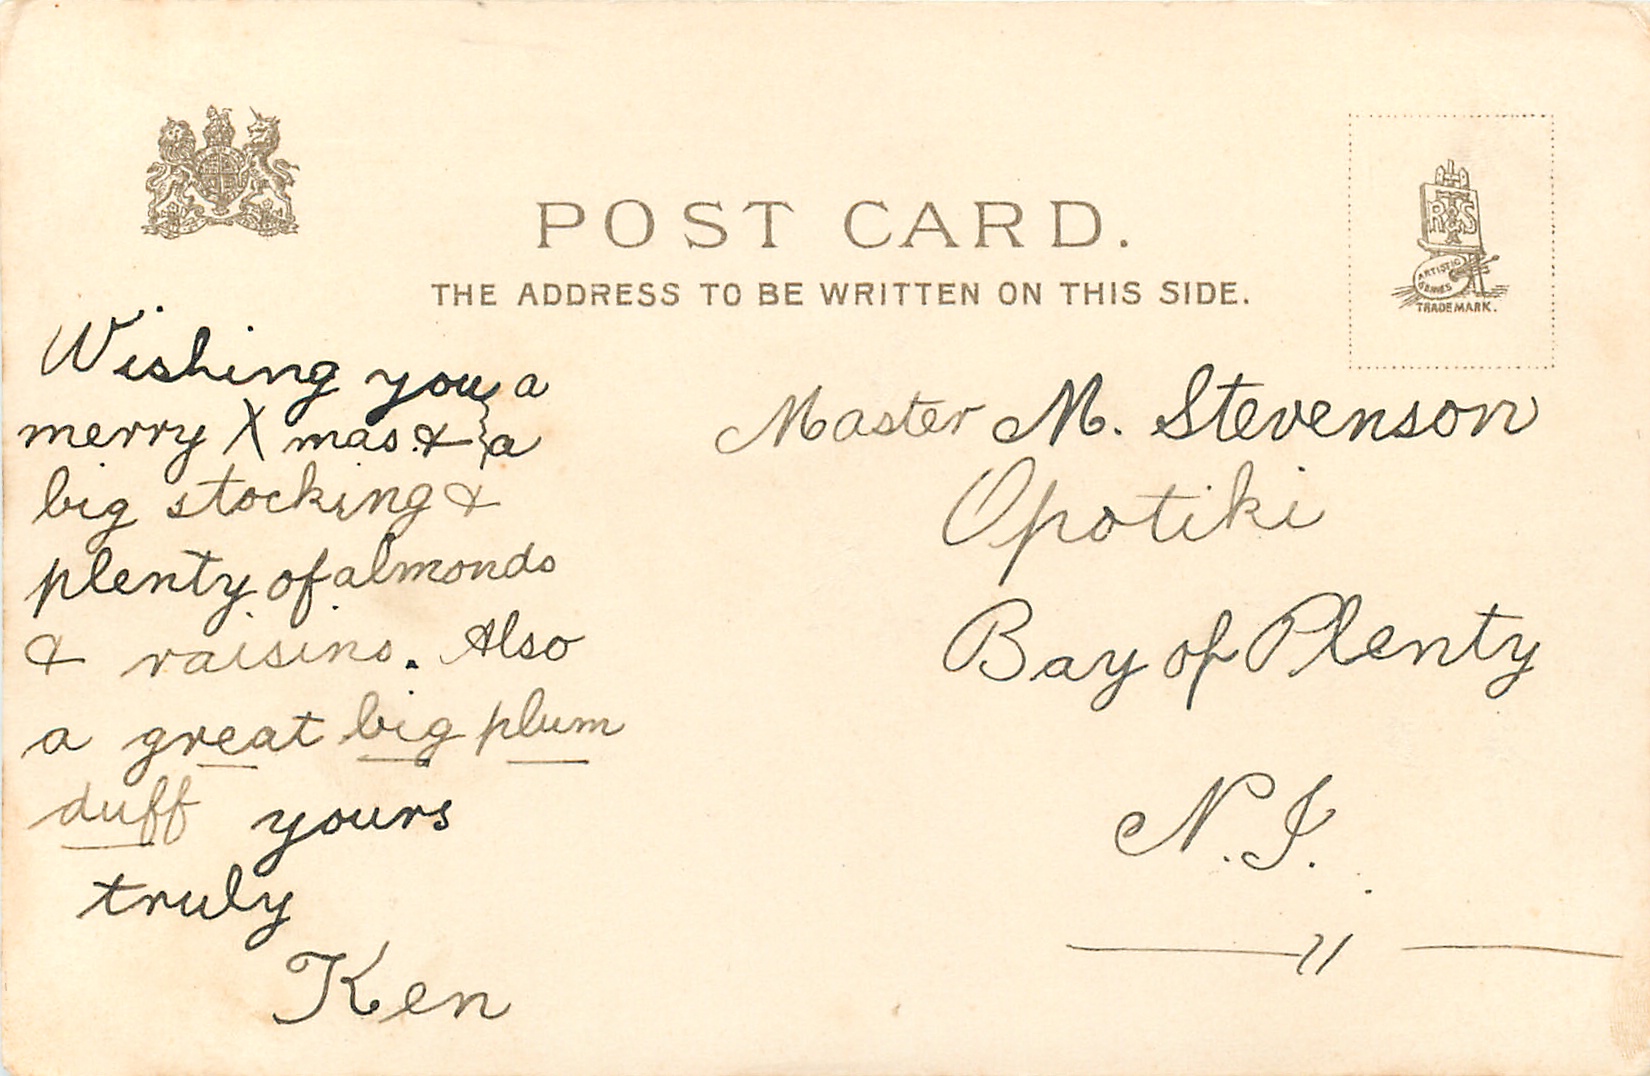 POST CARD.
THE ADDRESS TO BE WRITTEN ON THIS SIDE.
RTS
&
ARTISTIC
SERIES
TRADE MARK.
Wishing you a
merry Xmas & a
big stocking &
plenty of almonds
& raisins. Also
a great big plum
duff yours
truly
Ken
Master M. Stevenson
Opotiki
Bay of Plenty
N.I.